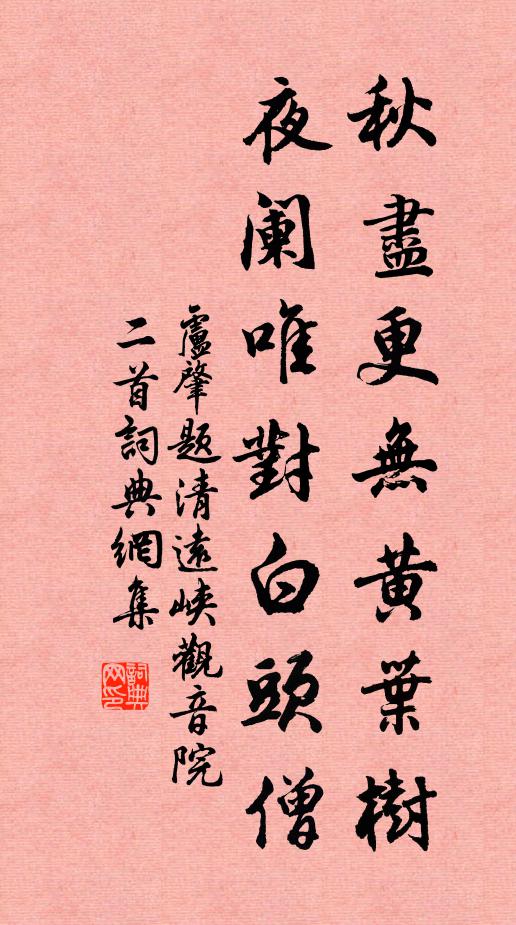 秋盡更無黄葉樹
夜阑唯對白頭僧
盧肇題清遠峽觀音院
二首詞典網集
詞典
网印